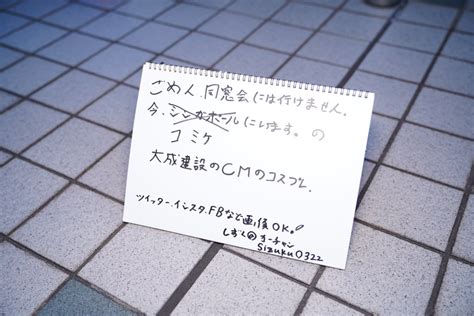 ごめん、同窓会には行けません。
今、シンガポールにいます。の
コミケ
大成建設のCMのコスプレ。
ツイッター、インスタ、FBなど画像OK。
しずく@オーチャン
Sizuku0322